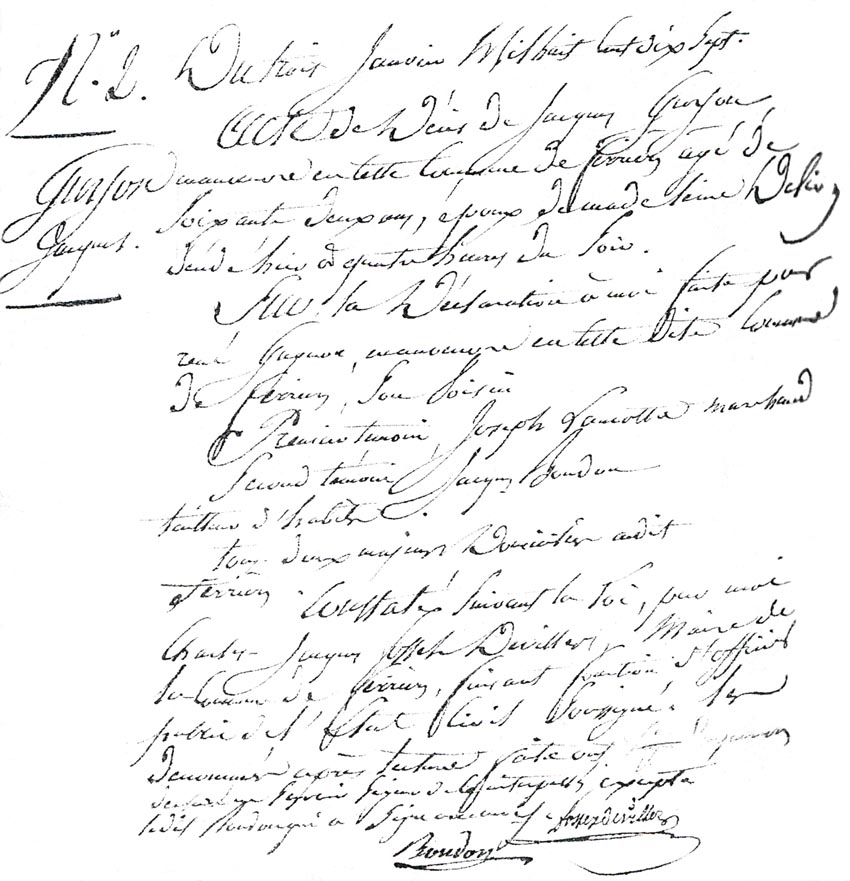 N.º 2. Du trois Janvier Mil huit cent dix Sept.
Acte de Décès de Jacques Gorjon
Gorjon
Jacques.
manœuvre en cette Commune de ferrier agé de
Soixante deux ans, époux de
décédé hier à quatre heures du Soir.
Sur la Déclaration à moi faite par
rené manœuvre en cette Dite Commune
De ferrier, Son Voisin
Premier témoin, Joseph Lamotte marchand
Second témoin Jacques Boudon
tailleur d'habits.
tous deux majeurs Domiciliés audit
ferrier. Constaté Suivant la Loi, par moi
Charles Jacques Joseph Devillers, Maire de
la Commune de ferrier, faisant fonction d'officier
public de l'état Civil Soussigné. Les
dénommés après lecture faite ont
excepté
ledit Boudon qui a Signé avec nous. Joseph devillers
Boudon